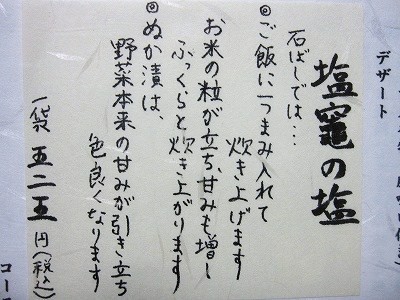 デザート
塩竈の塩
石ばしでは…
◎ご飯に一つまみ入れて
炊き上げます
お米の粒が立ち、甘みも増し
ふっくらと炊き上がります
◎ぬか漬は、
野菜本来の甘みが引き立ち
色良くなります
一袋 五二五円(税込)
コー